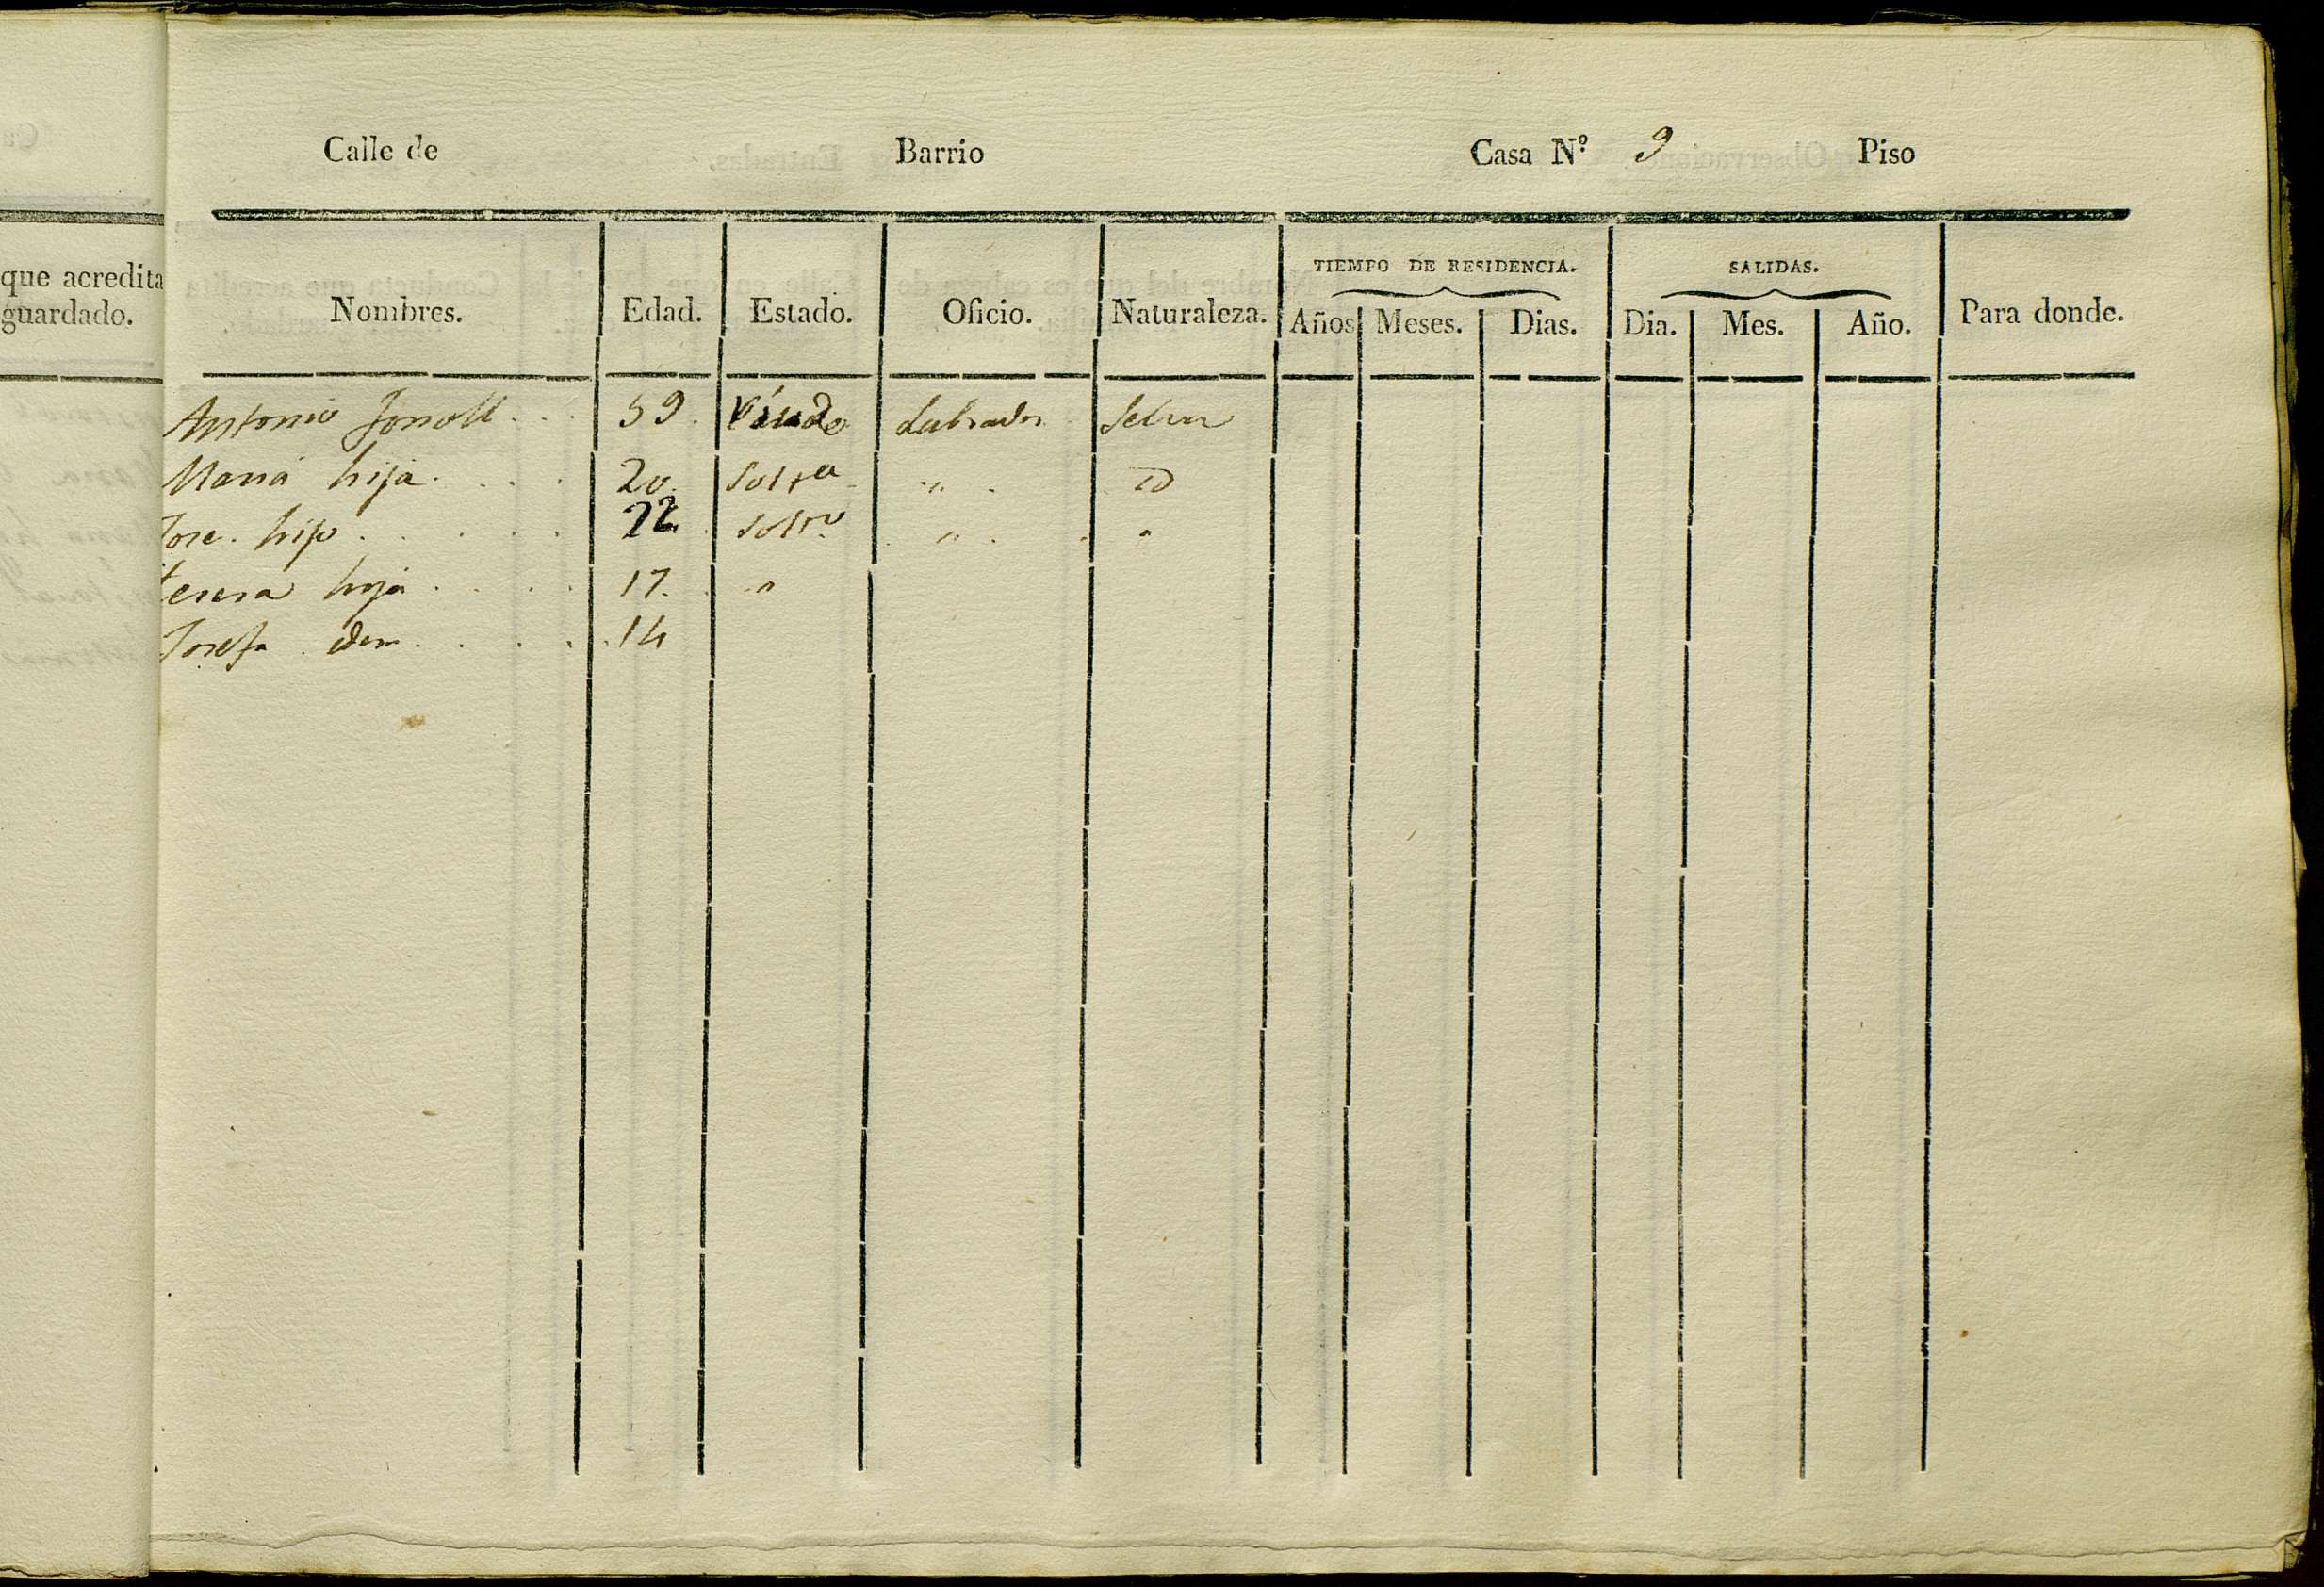 que acredita
guardado.
Calle de Barrio Casa Nº. 9 Piso
TIEMPO DE RESIDENCIA. SALIDAS.
Nombres. Edad. Estado. Oficio. Naturaleza. Años Meses. Dias. Dia. Mes. Año. Para donde.
Antonio 59. Viudo Labrador Selva
Maria hija. 20. Solt.ra " ID
Jose. hijo 22. Solt.ro " "
teresa hija 17. "
Josefa idem 14